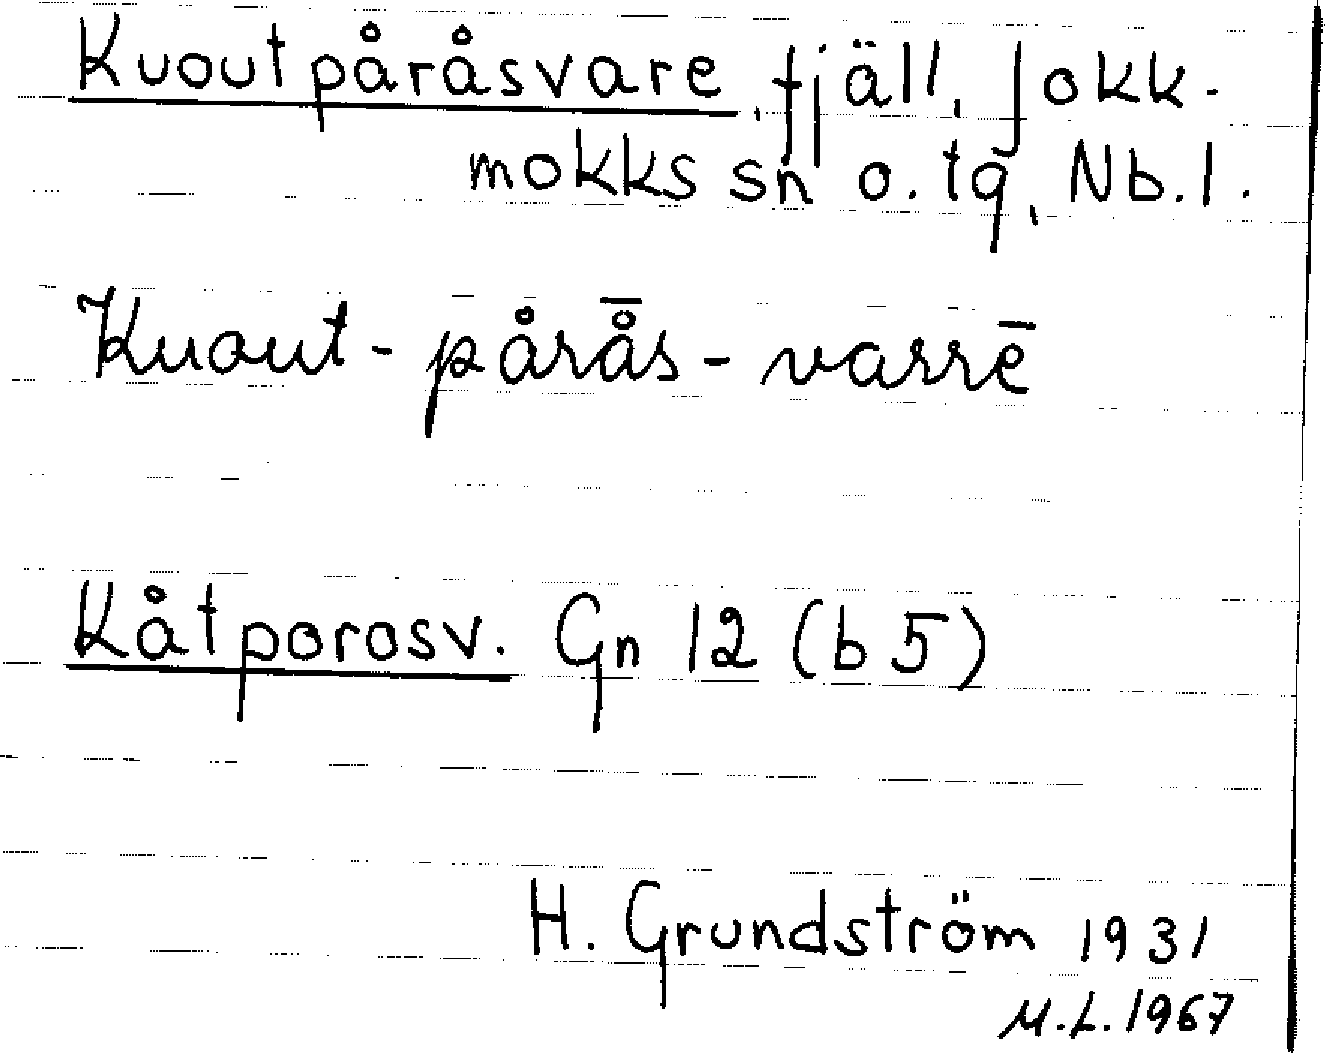 Kuoutpåråsvare, fjäll, Jokk-
mokks sn o. tg, Nb.l.
Kuout-pårå̄s-varrē
Kåtporosv. Gn 12 (b5)
H. Grundström 1931
M.L. 1967